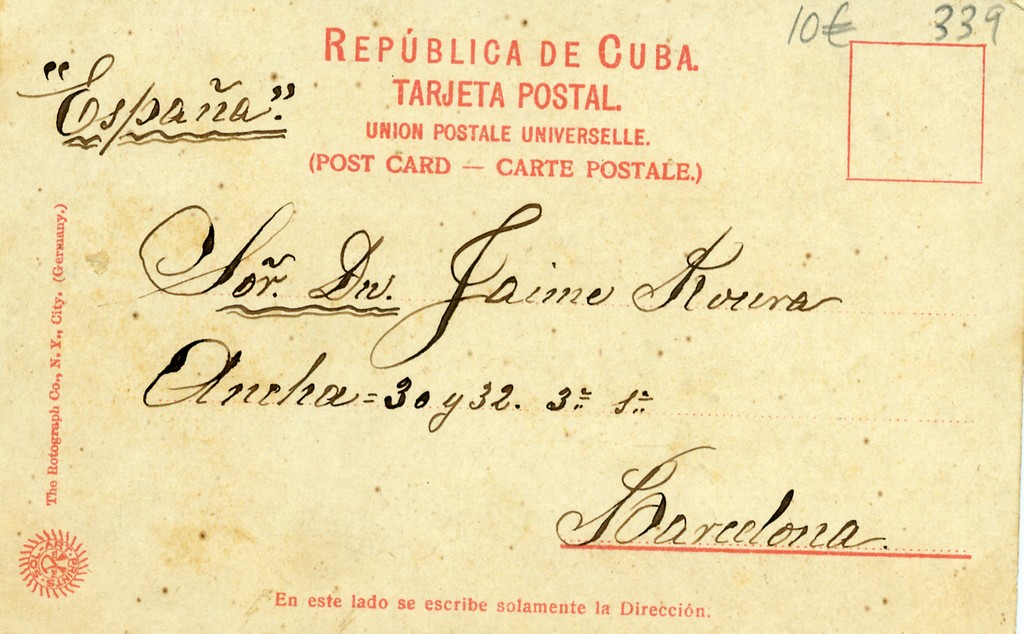 10€ 339
REPÚBLICA DE CUBA.
TARJETA POSTAL.
UNION POSTALE UNIVERSELLE.
(POST CARD — CARTE POSTALE.)
"España".
Soñr. Dn. Jaime Roura
Ancha = 30 y 32. 3º 1ª
Barcelona.
The Rotograph Co., N. Y., City. (Germany.)
SOL-ART PRINTS
En este lado se escribe solamente la Dirección.